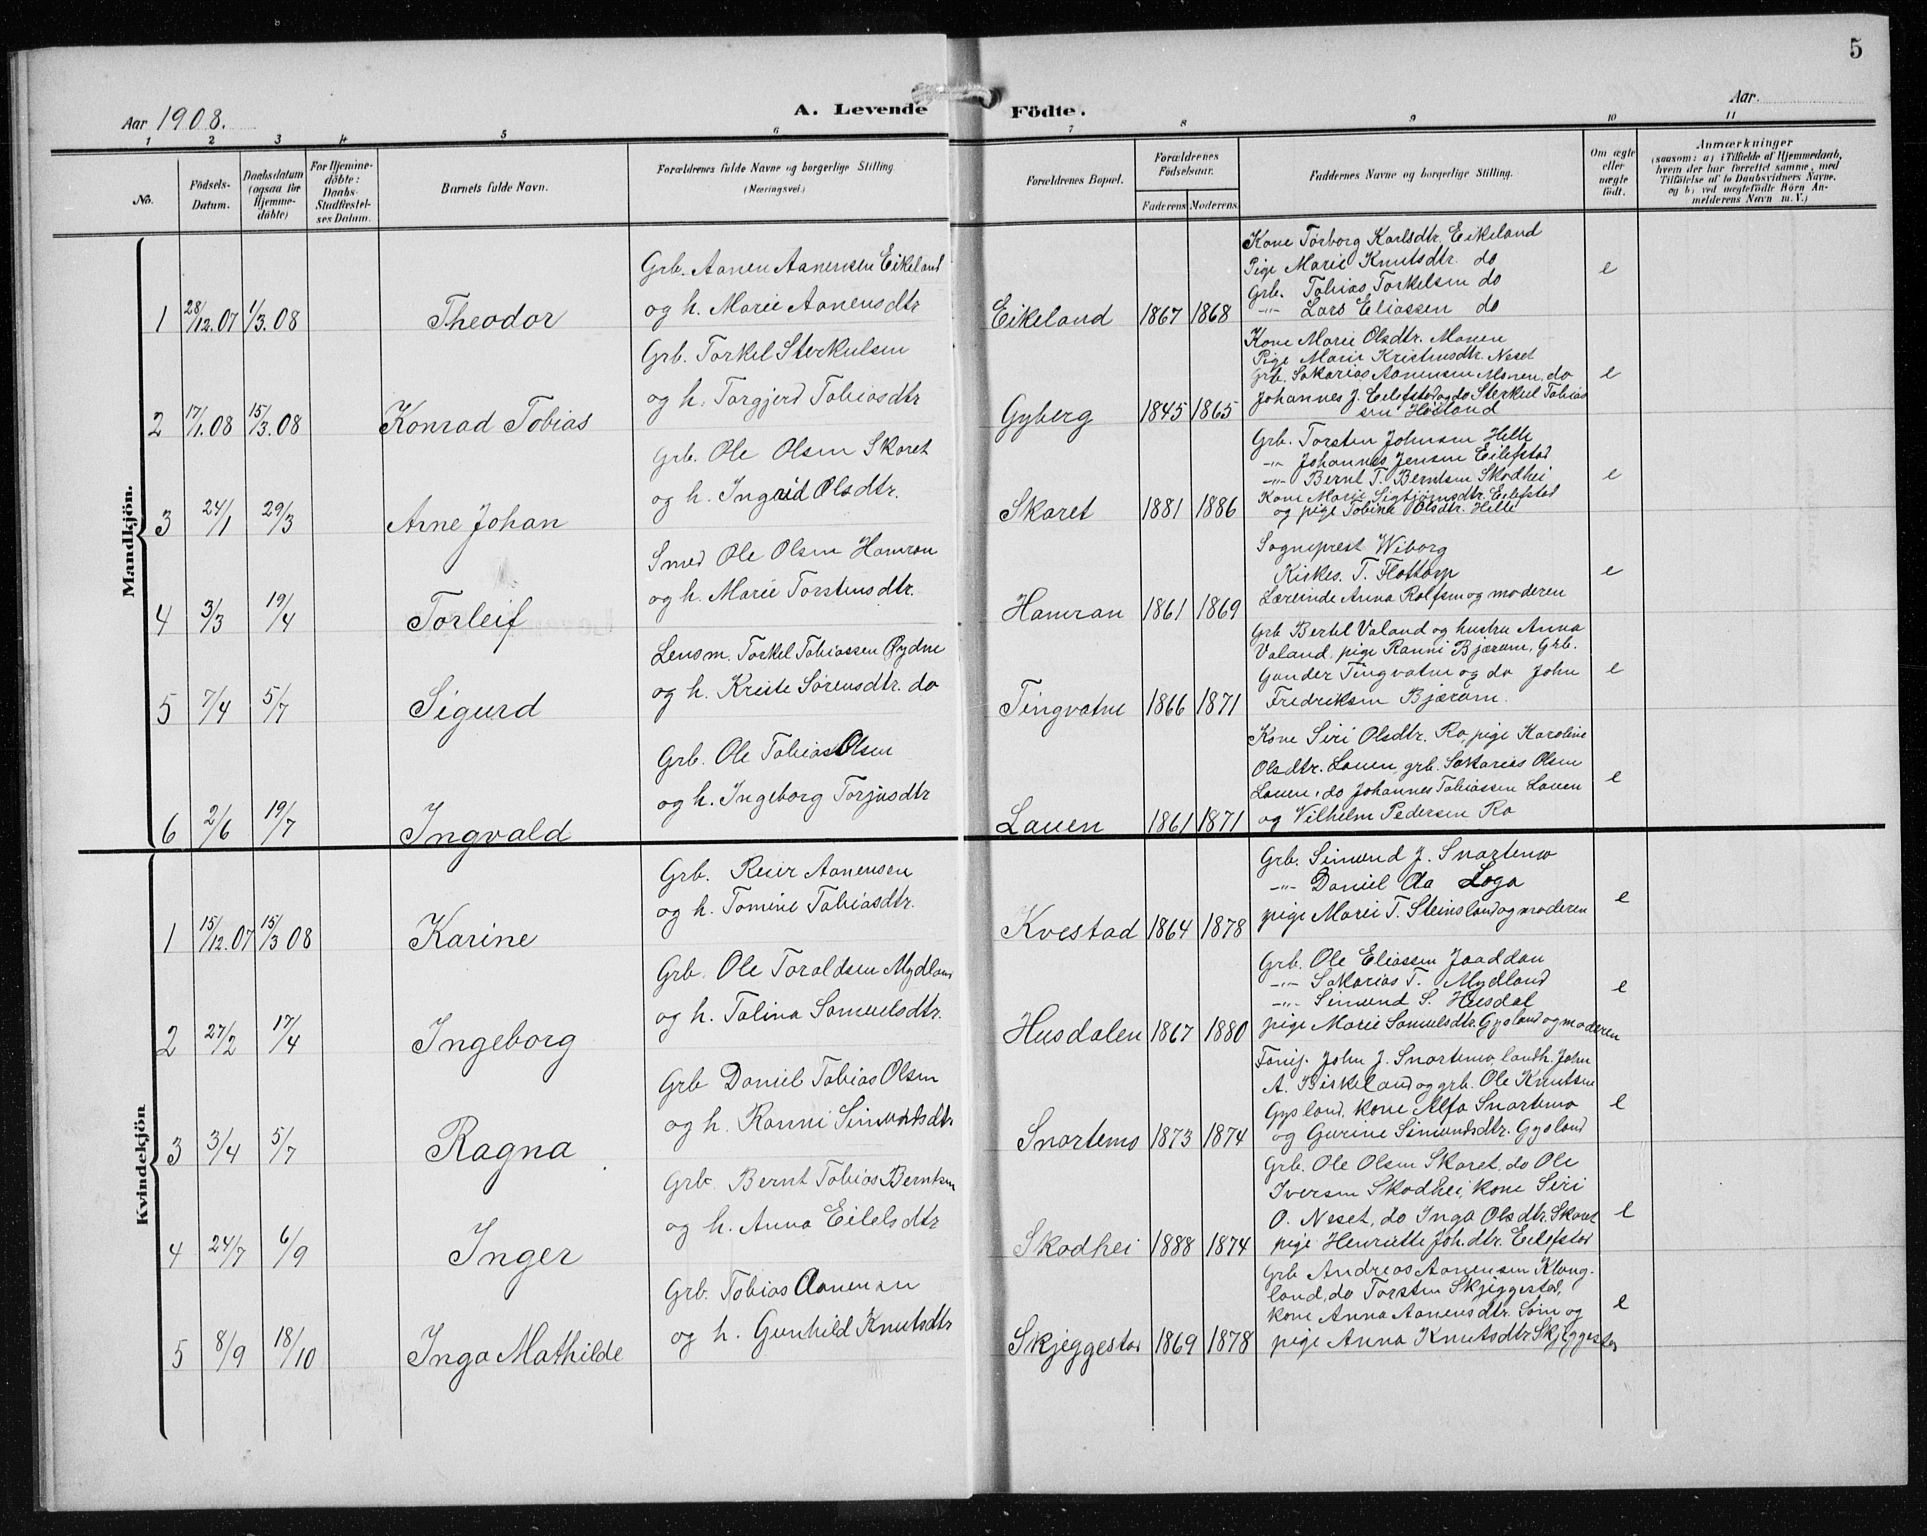 5
Aar 1908.
A. Levende Födte.
Aar.
1 2 3 4 5 6 7 8 9 10 11
No.
Födsels-Datum.
Daabsdatum (ogsaa for Hjemmedöbte)
For Hjemmedöbte: Daabs-Stadfæstelses Datum.
Barnets fulde Navn.
Forældrenes fulde Navne og borgerlige Stilling
(Næringsvei.)
Forældrenes Bopæl.
Forældrenes Födselsaar.
Faderens Moderens
Faddernes Navne og borgerlige Stilling.
Om ægte eller uægte födt.
Anmærkninger
(saasom: a) i Tilfælde af Hjemmedaab,
hvem der har forrettet samme, med
Tilföielse af to Daabsvidners Navne,
og b) ved uægtefödte Börn Anmelderens Navn m. V.)
Mandkjön.
1 28/12.07 1/3.08 Theodor
Grb. Aanen Aanensen Eikeland
og h. Marie Aanensdtr
Eikeland 1867 1868
Kone Torborg Karlsdtr. Eikeland
Pige Marie Knutsdtr. do
Grb. Tobias Torkelsen do
-"- Lars Eliassen do
e
2 17/1.08 15/3.08 Konrad Tobias
Grb. Torkel Sterkulsen
og h. Torgjerd Tobiasdtr
Gyberg 1845 1865
Kone Marie Olsdtr. Monen
Pige Marie Kristensdtr. Neset
Grb. Sakarias Aanensen Monen, do
Johannes J. Eilefstad og do Sterkul Tobias
sen Høiland
e
3 24/1 29/3 Arne Johan
Grb. Ole Olsen Skaret
og h. Ingrid Olsdtr.
Skaret 1881 1886
Grb. Torsten Johnsen Helle
-"- Johannes Jensen Eilefstad
-"- Bernt T. Berntsen Skodhei
Kone Marie Sigbjørnsdtr. Eilefstad
og pige Tobine Olsdtr. Helle
e
4 3/3 19/4 Torleif
Smed Ole Olsen Hamran
og h. Marie Torstensdtr.
Hamran 1861 1869
Sogneprest Wiborg
Kirkes. T. Flottorp
Lærerinde Anna Rolfsen og moderen
e
5 7/4 5/7 Sigurd
Lensm. Torkel Tobiassen Øydne
og h. Kriste Sørensdtr. do
Tingvatne 1866 1871
Grb Bertel Valand og hustru Anna
Valand, pige Ranni Bjærum, Grb.
Gunder Tingvatne og do John
Fredriksen Bjærum.
e
6 2/6 19/7 Ingvald
Grb. Ole Tobias Olsen
og h. Ingeborg Torjusdtr
Lauen 1861 1871
Kone Siri Olsdtr. Ro, pige Karoline
Olsdtr. Lauen, grb. Sakarias Olsen
Lauen, do Johannes Tobiassen Lauen
og Vilhelm Pedersen Ro
e
Kvindekjön
1 15/12.07 15/3 08 Karine
Grb. Reier Aanensen
og h. Tomine Tobiasdtr.
Kvestad 1864 1878
Grb. Simund J. Snartemo
-"- Daniel Aa Loga
pige Marie T. Steinsland og moderen
e
2 27/2 17/4 Ingeborg
Grb. Ole Toraldsen Mydland
og h. Talina Samuelsdtr.
Husdalen 1867 1880
Grb. Ole Eliassen Jaaddan
-"- Sakarias T. Mydland
-"- Simund S. Husdal
pige Marie Samuelsdtr. Gysland og moderen
e
3 3/4 5/7 Ragna
Grb Daniel Tobias Olsen
og h. Ranni Simundsdtr
Snartemo 1873 1874
John J. Snartemo landh. John
A. Birkeland og grb. Ole Knutsen
Gysland, kone Alfa Snartemo
og Gurine Simundsdtr. Gysland
e
4 24/7 6/9 Inger
Grb. Bernt Tobias Berntsen
og h. Anna Eilefsdtr
Skodhei 1888 1874
Grb. Ole Olsen Skaret, do Ole
Iversen Skodhei, kone Siri
O. Neset, do Inga Olsdtr. Skaret
pige Henriette Joh.dtr. Eilefstad
e
5 8/9 18/10 Inga Mathilde
Grb. Tobias Aanensen
og h. Gunhild Knutsdtr
Skjeggestad 1869 1878
Grb Andreas Aanensen Klung-
land, do Torsten Skjeggestad,
kone Anna Aanensdtr. Som og
pige Anna Knutsdtr Skjeggestad
e